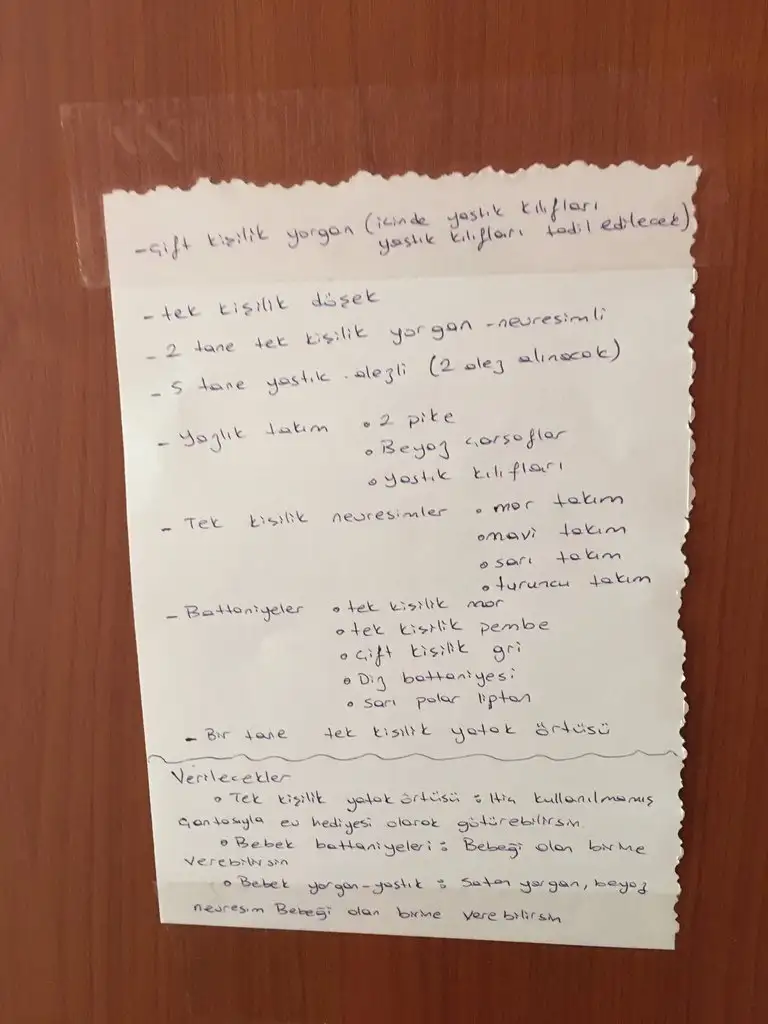 - Çift kişilik yorgan (içinde yastık kılıfları
yastık kılıfları tadil edilecek)
- tek kişilik döşek
- 2 tane tek kişilik yorgan - nevresimli
- 5 tane yastık - alezli (2 alez alınacak)
- Yazlık takım • 2 pike
• Beyaz çarşaflar
• yastık kılıfları
- Tek kişilik nevresimler • mor takım
• mavi takım
• sarı takım
• turuncu takım
- Battaniyeler • tek kişilik mor
• tek kişilik pembe
• Çift kişilik gri
• Diz battaniyesi
• sarı polar lipton
- Bir tane tek kişilik yatak örtüsü
Verilecekler
• Tek kişilik yatak örtüsü : Hiç kullanılmamış
Çantasıyla ev hediyesi olarak götürebilirsin
• Bebek battaniyeleri : Bebeği olan birine
verebilirsin
• Bebek yorgan-yastık : Saten yorgan, beyaz
nevresim Bebeği olan birine verebilirsin